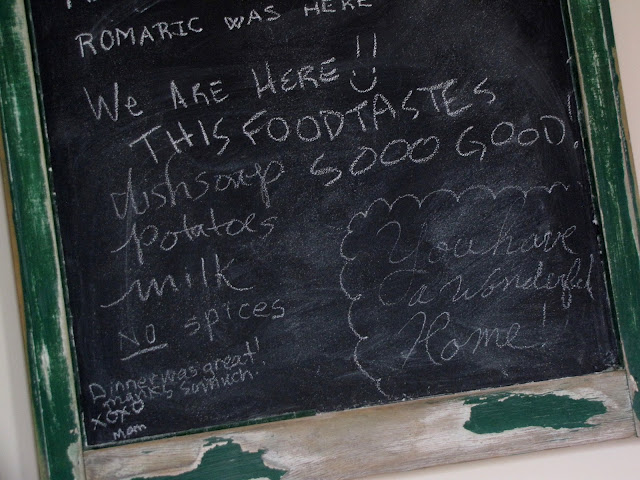 ROMARIC WAS HERE
WE ARE HERE!!
THIS FOOD TASTES
SOOO GOOD!
dishsoap
potatoes
milk
No spices
You have
a wonderful
Home!!
Dinner was great!
Thanks so much!
XOXO
Mom